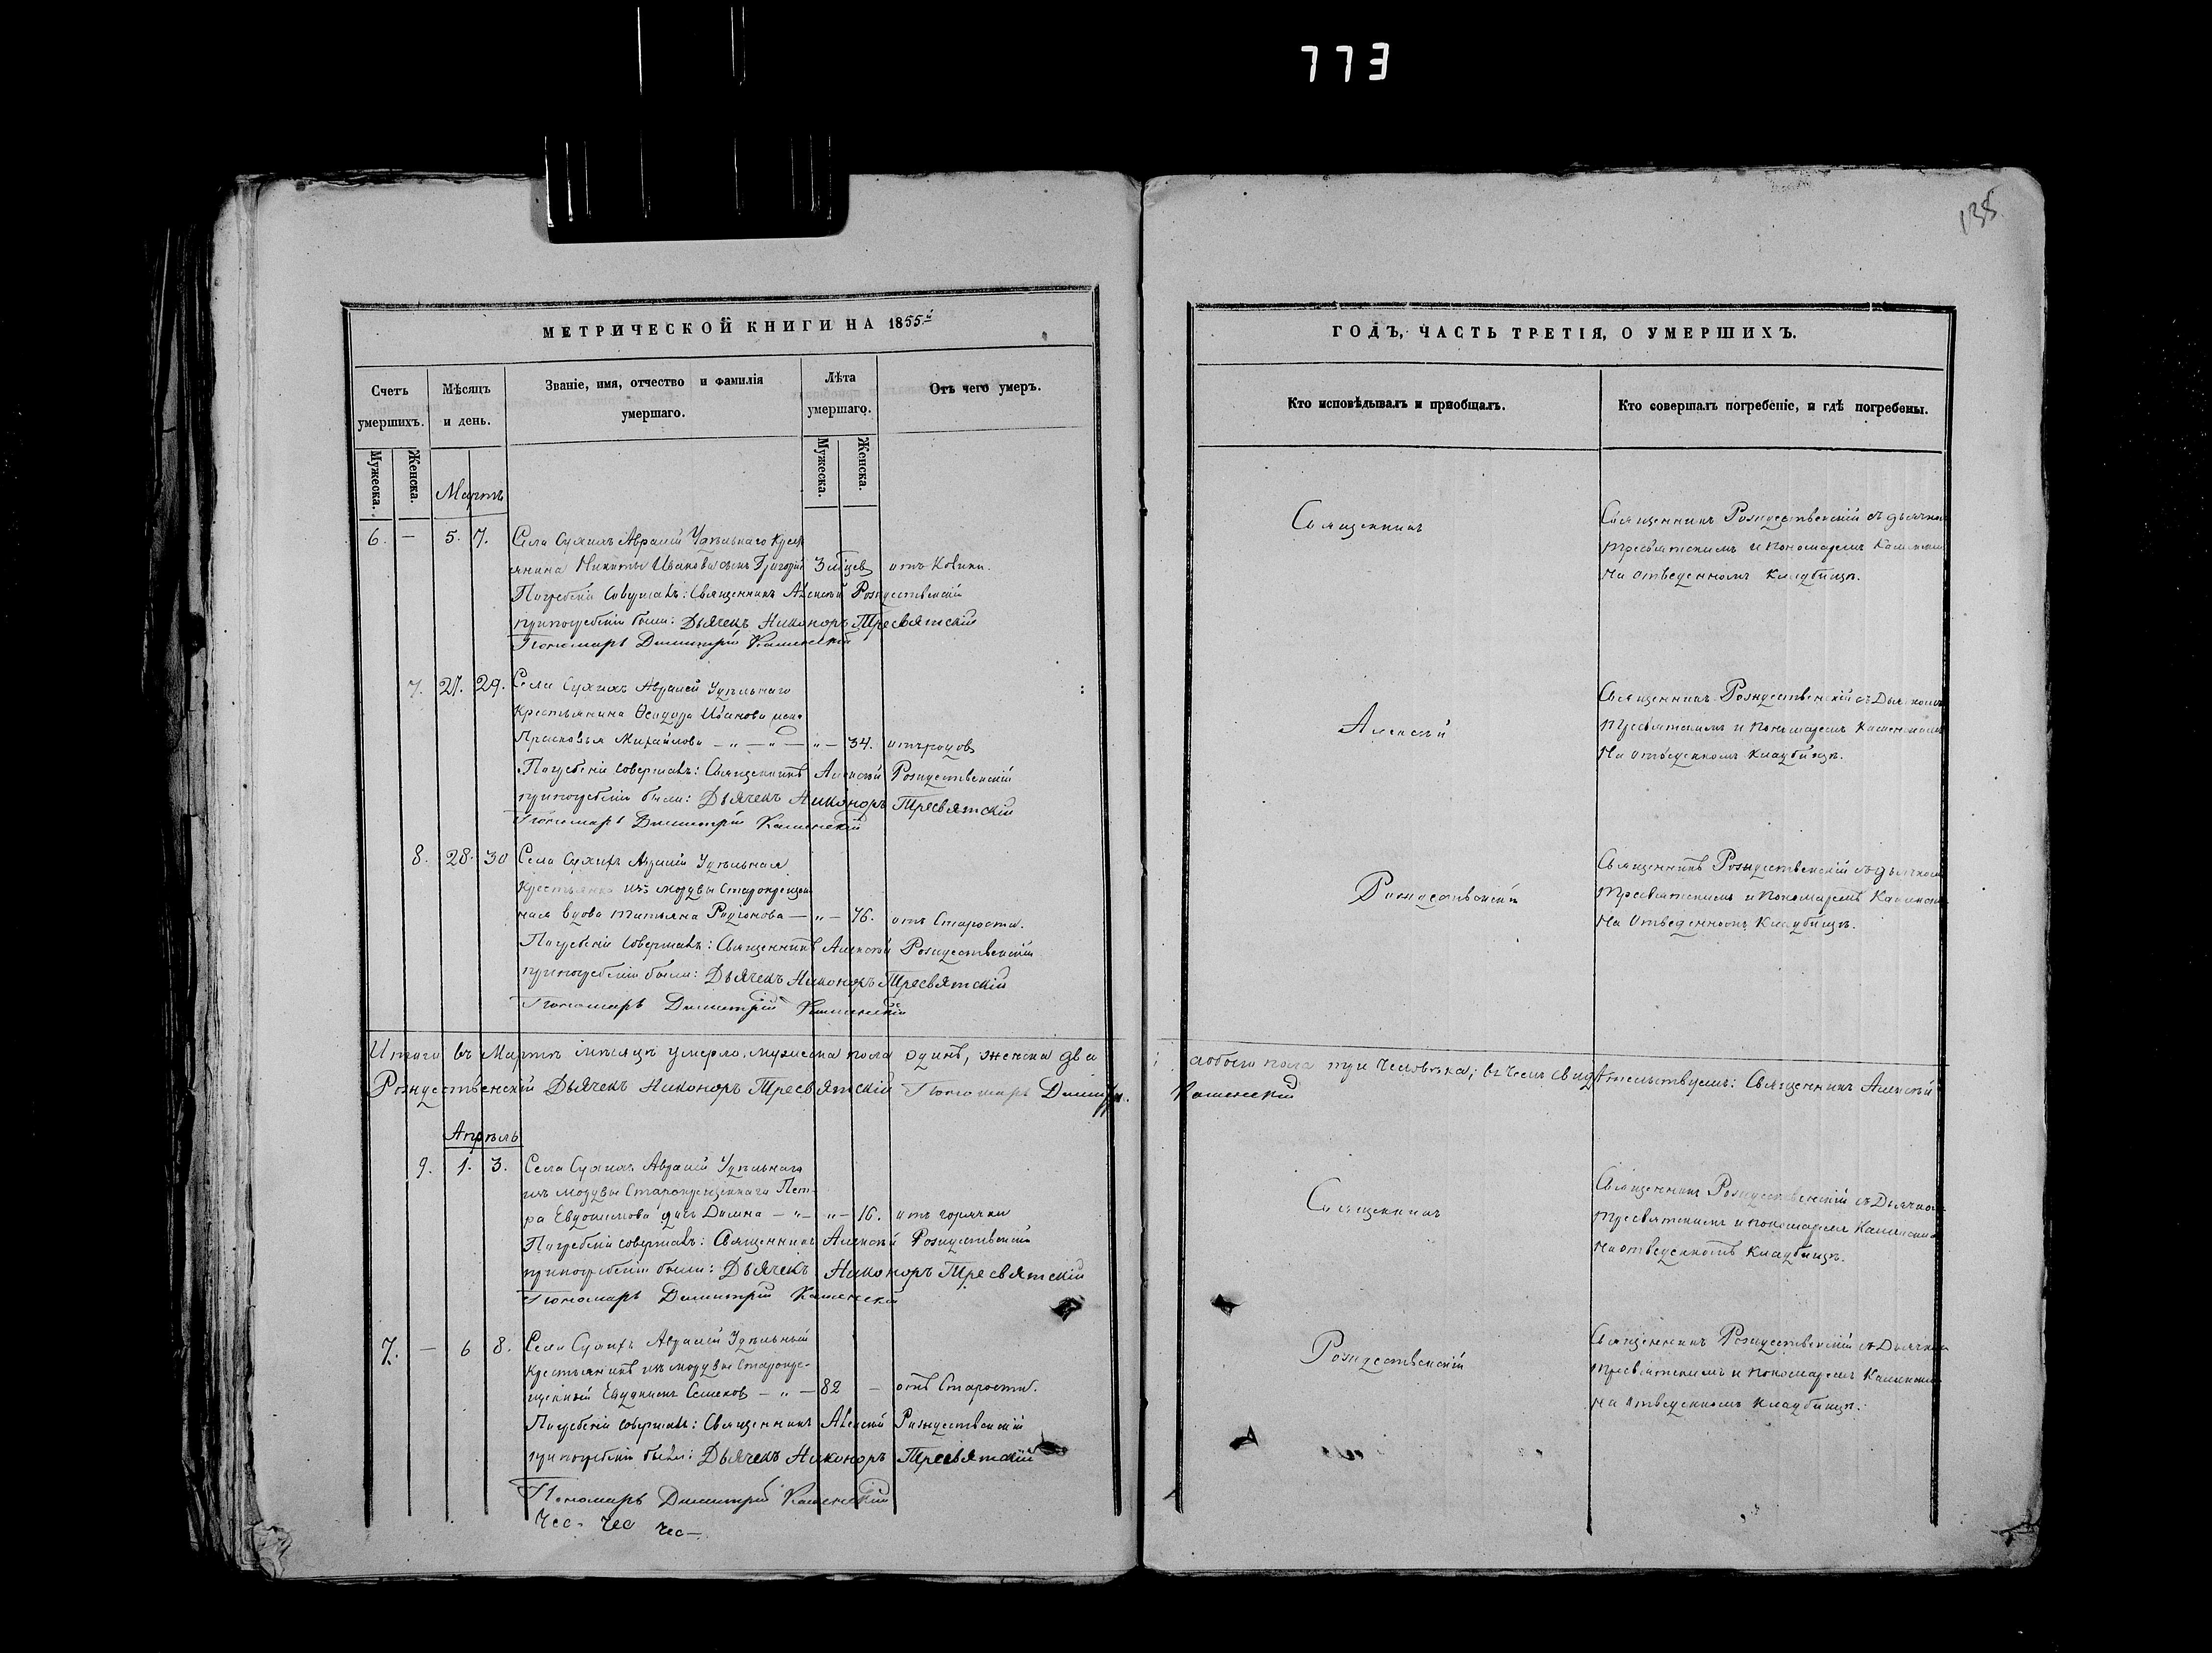 773
135
МЕТРИЧЕСКОЙ КНИГИ НА 1855й
Счетъ умершихъ.
Мѣсяцъ и день.
Званіе, имя, отчество и фамилія умершаго.
Лѣта умершаго.
Отъ чего умеръ.
Мужеска.
Женска.
Мужеска.
Женска.
Мартъ
6. — 5. 7. Села Сухихъ Авралей Удѣльнаго Кресть
янина Никиты Иванова сынъ Григорій 3 мѣсецев отъ
Погребеніе Совершалъ: Священникъ Алексѣй Рождественскій
при погребеніи были: Дьячекъ Никоноръ Тресвятскій
Пономарь Димитрій Каменскій
7. 27. 29. Села Сухихъ Авралей Удѣльнаго
Крестьянина Ѳеодора Иванова жена
Прасковья Михайлова — „ — „ — „ — 34. отъ родов
Погребеніе совершалъ: Священникъ Алексѣй Рождественскій
при погребеніи были: Дьячекъ Никоноръ Тресвятскій
Пономарь Димитрій Каменскій
8. 28. 30 Села Сухихъ Авралей Удѣльная
Крестьянка изъ мордвы Старокрещен
ная вдова Татьяна Родіонова — „ — 76. отъ Старости.
Погребеніе Совершалъ: Священникъ Алексѣй Рождественскій
при погребеніи были: Дьячекъ Никоноръ Тресвятскій
Пономарь Димитрій Каменскій
Итого въ Мартѣ мѣсяцѣ умерло, мужеска пола одинъ, женска два
Рождественскій Дьячекъ Никоноръ Тресвятскій Пономарь Димитрі.
Апрѣль
9. 1. 3. Села Сухихъ Авралей Удѣльнаго
изъ мордвы Старокрещеннаго Пет-
ра Евдокимова дочь Домна — „ — „ — 16. отъ горячки
Погребеніе совершалъ: Священникъ Алексѣй Рождественскій
при погребеніи были: Дьячекъ Никоноръ Тресвятскій
Пономарь Димитрій Каменскій
7. — 6 8. Села Сухихъ Авралей Удѣльный
Крестьянинъ изъ мордвы Старокре-
щенный Семенов — „ — 82 — отъ Старости.
Погребеніе совершалъ: Священникъ Алексѣй Рождественскій
при погребеніи были: Дьячекъ Никоноръ Тресвятскій
Пономарь Димитрій Каменскій
Чес- Чес Чес-
ГОДЪ, ЧАСТЬ ТРЕТІЯ, О УМЕРШИХЪ.
Кто исповѣдывалъ и пріобщалъ.
Кто совершалъ погребеніе, и гдѣ погребены.
Священникъ
Священникъ Рождественскій съ дьячком
Тресвятскимъ и Пономаремъ Каменским
На отведенномъ Кладбищѣ.
Алексѣй
Священникъ Рождественскій съ Дьячкомъ
Тресвятскимъ и Пономаремъ Каменскимъ
На отведенномъ Кладбищѣ.
Рождественскій
Священникъ Рождественскій съ дьячком
Тресвятскимъ и Пономаремъ Каменск
На Отведенномъ Кладбищѣ.
; а обоего пола три человѣка; въ чемъ свидѣтельствуемъ: Священникъ Алексѣй
Каменскій
Священникъ
Священникъ Рождественскій съ Дьячко
Тресвятскимъ и пономаремъ Каменским
На отведенномъ Кладбищѣ.
Рождественскій
Священникъ Рождественскій съ Дьячком
Тресвятскимъ и пономаремъ Каменским
На отведенномъ Кладбищѣ.